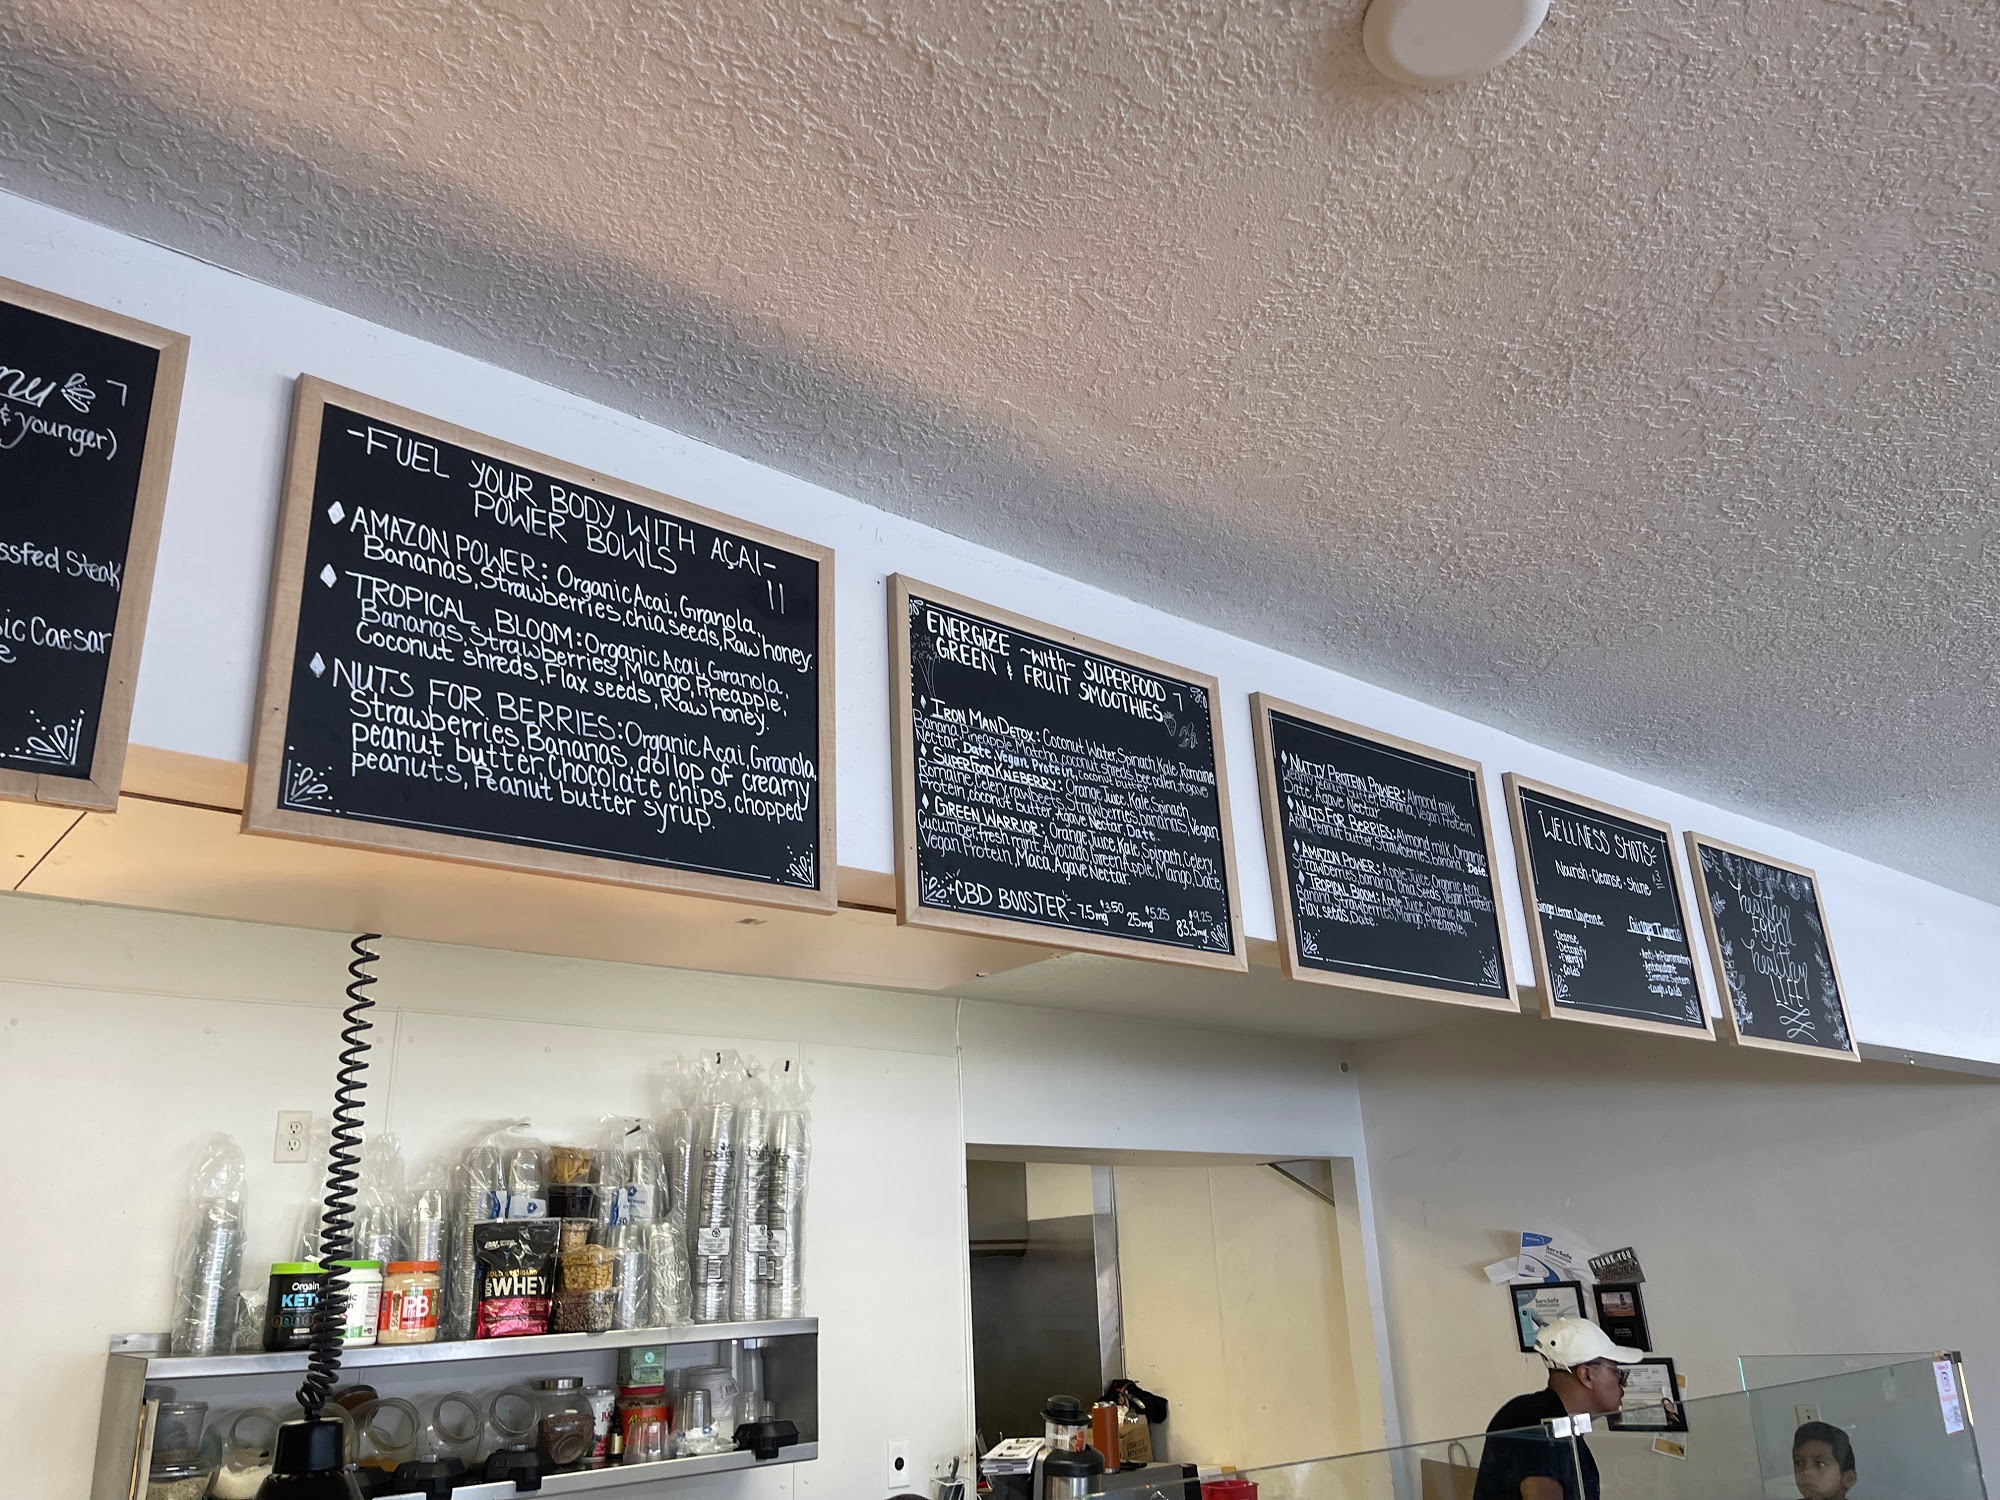 nu 7
& younger)
ssfed Steak
sic Caesar
e
-FUEL YOUR BODY WITH AÇAI-
POWER BOWLS 11
AMAZON POWER: Organic Acai, Granola,
Bananas, Strawberries, chia seeds, Raw honey.
TROPICAL BLOOM: Organic Acai, Granola,
Bananas, Strawberries, Mango, Pineapple,
Coconut shreds, Flax seeds, Raw honey.
NUTS FOR BERRIES: Organic Acai, Granola,
Strawberries, Bananas, dollop of creamy
peanut butter, Chocolate chips, chopped
peanuts, Peanut butter syrup.
ENERGIZE ~with~ SUPERFOOD
GREEN & FRUIT SMOOTHIES 7
IRON MAN DETOX: Coconut Water, Spinach, Kale, Romaine
Banana, Pineapple, Matcha, coconut shreds, bee pollen, Agave
Nectar, Date, Vegan Protein, coconut butter.
SUPERFOOD KALEBERRY: Orange Juice, Kale, Spinach
Romaine, Celery, raw beets, Strawberries, bananas, Vegan
Protein, coconut butter, Agave Nectar, Date.
GREEN WARRIOR: Orange Juice, Kale, Spinach, Celery,
Cucumber, fresh mint, Avocado, Green Apple, Mango, Date,
Vegan Protein, Maca, Agave Nectar.
+CBD BOOSTER - 7.5mg $3.50 25mg $5.25 83.3mg $9.25
NUTTY PROTEIN POWER: Almond milk,
Creamy Peanut Butter, Banana, Vegan Protein,
Date, Agave Nectar.
NUTS FOR BERRIES: Almond milk, Organic
Acai, Peanut butter, Strawberries, banana, Date.
AMAZON POWER: Apple Juice, Organic Acai,
Strawberries, banana, Chia Seeds, Vegan Protein
TROPICAL BLOOM: Apple Juice, Organic Acai,
Banana, Strawberries, Mango, Pineapple,
Flax seeds, Date.
WELLNESS SHOTS
Nourish · Cleanse · Shine
Ginger Lemon Cayenne
· Cleanse
· Detoxify
· Energy
· Colds
Ginger Turmeric
· Anti-Inflammatory
· Antioxidant
· Immune System
· Cough & Colds
healthy
FOOD
healthy
LIFE
Orgain
KETO
PB
GOLD STANDARD
WHEY
bare
ServSafe
THANK YOU
ServSafe